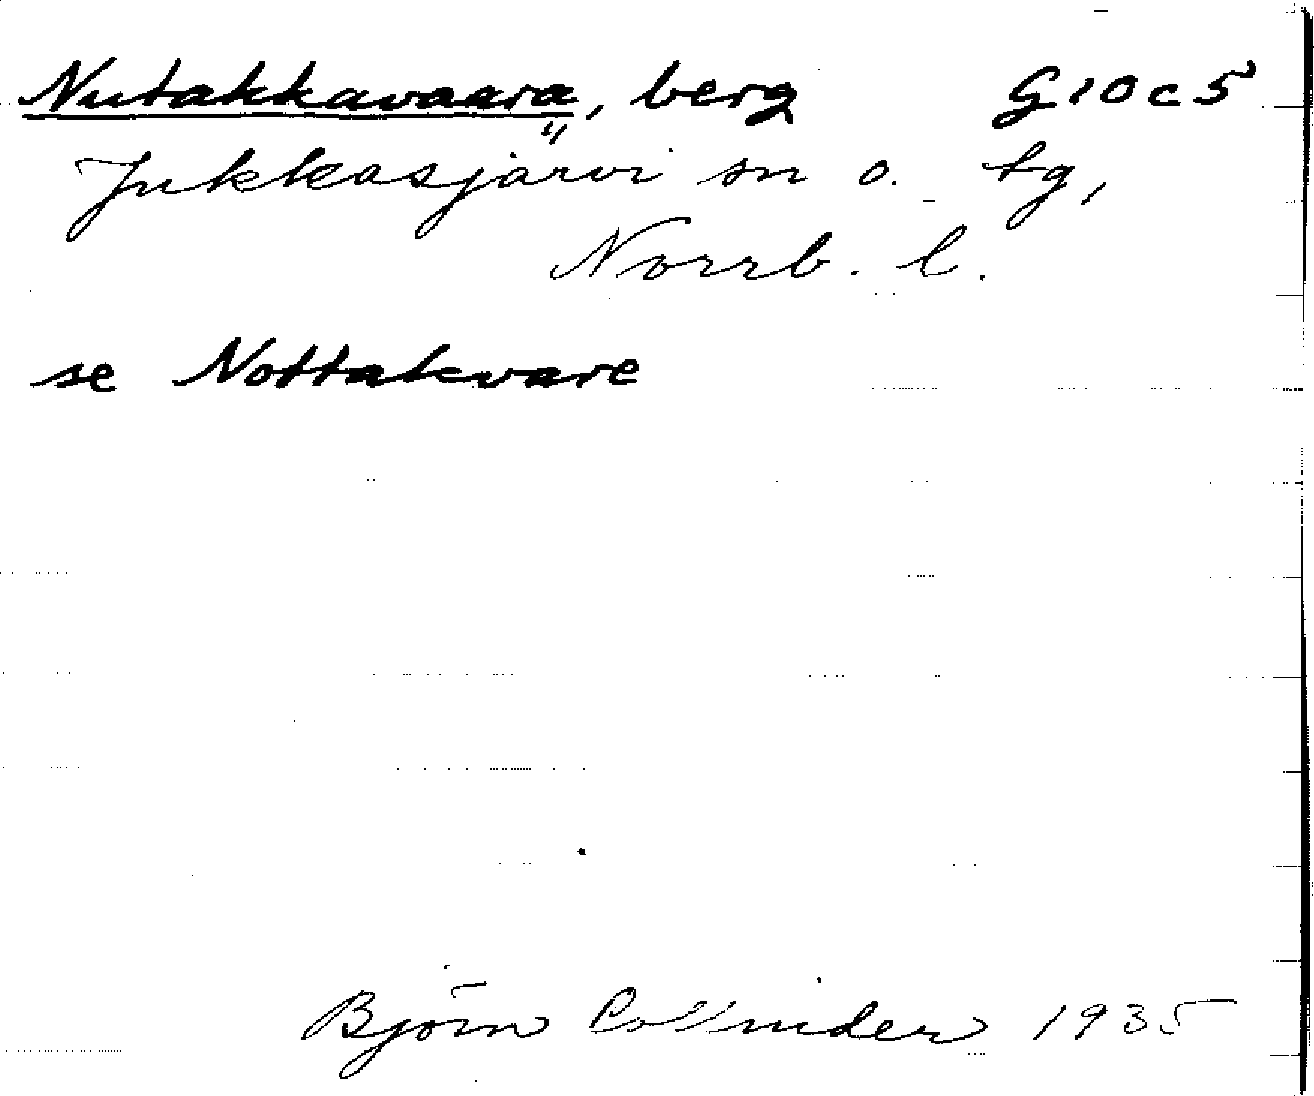 Nutakkavaara, berg G10c5
Jukkasjärvi sn o. tg,
Norrb. l.
se Nottakvare
Björn Collinder 1935